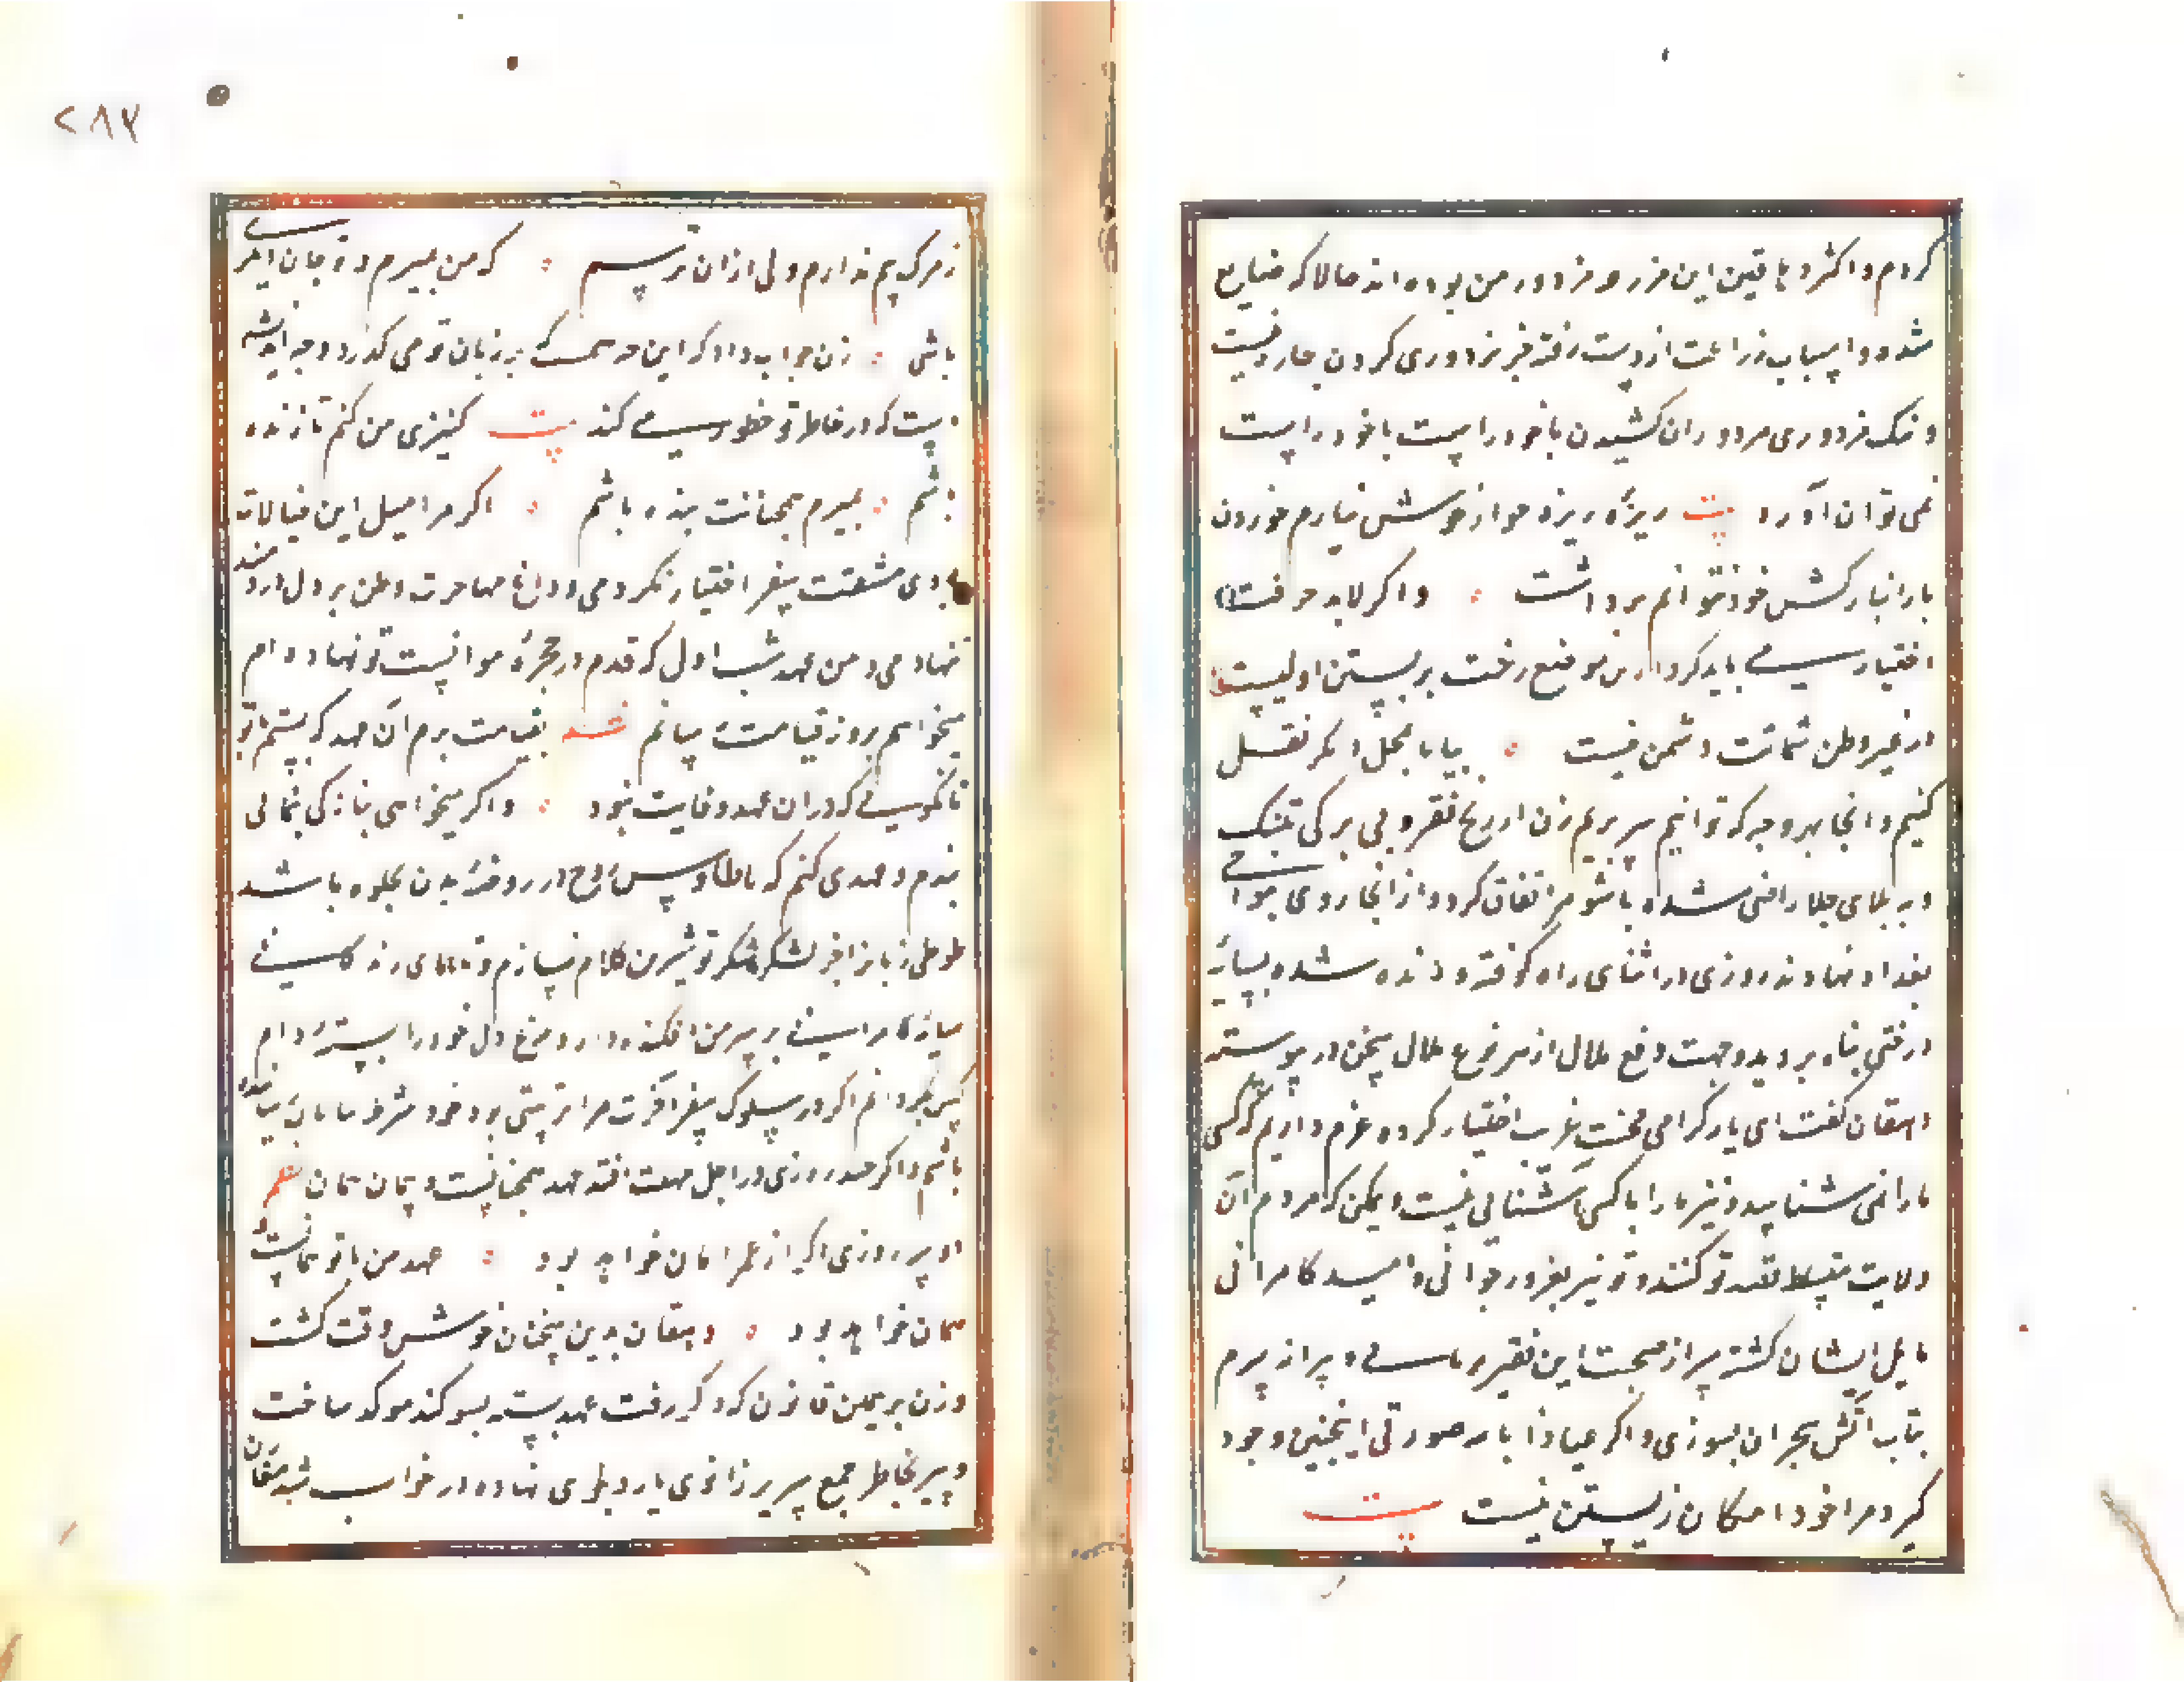 کردم و اکثر دهاقین این مزرعه مزدور من بوده‌اند حالا که ضیاع
شده و اسباب زراعت از دست رفته جز مزدوری کردن چاره نیست
و ننک مزدوری مزدوران کشیدن با خود راست
نمی‌توان آورد بیت ریزه ریزه جو از خوشش نیارم خوردن
بار انبار کشش خود نتوانم برداشت و اکر لابد حرفت
اختیار می باید کرد ازین موضع رخت بر بستن اولیست
در غیر وطن شماتت دشمن نیست بیا تا بمحل دیکر نقل
کنیم و انجا بهر وجه که توانیم سر بریم زن از رنج فقر و بی برکی تنک
و به بلای جلا راضی شده با شوهر اتفاق کرد و از انجا روی بنواحی
بغداد نهادند روزی در اثنای راه کوفته و مانده شده بسایه
درختی پناه بردند و جهت دفع ملال از هر نوع سخن در پیوستند
دهقان کفت ای یار کرامی محنت غربت اختیار کرده عزم داریم که کس
ما را نمی‌شناسد و نیز ما را با کسی آشنایی نیست و یمکن که مردم آن
ولایت قصد تو کنند و تو نیز بغرور جوانی و امید کامرانی
مایل ایشان کشته سر از صحبت این فقیر بتابی و پرانه سرم
بتاب آتش هجران بسوزی و اکر عیاذا بالله صورتی اینچنین وجود
کیرد مرا خود امکان زیستن نیست بیت
۲۸۷
ز مرک بیم ندارم ولی ازان ترسم که من بمیرم و تو جان دیکری
باشی زن جواب داد که این چه سخنست که بر زبان تو می کذرد و چه اندیشه
است که در خاطر تو خطور می کند بیت کنیزی من کنم تا زنده
باشم بمیرم همچنانت بنده باشم اکر مرا میل این خیالات
بودی مشقت سفر اختیار نکردمی و داغ مهاجرت وطن بر دل دردمند
ننهادمی و من عهد شب اول که قدم در حجرهٔ مواست تو نهاده‌ام
میخواهم بروز قیامت رسانم بقیامت برم آن عهد که بستم با تو
تا نکویی که دران عهد وفایت نبود و اکر میخواهی بتازکی پیمانی
بندم و عهدی کنم که تا طاوس روح در روضهٔ بدن بجلوه باشد
طوطی زبانرا جز بشکر شکر تو شیرین کلام نسازم و تا همای زندکانی
سایهٔ کامرانی بر سر من افکنده دارد مرغ دل خود را بستهٔ دام
کس نکردانم اکر در سلوک سفر آخرت مرا بر تو سبقتی بود خود
باشم و اکر چند روزی در اجل مهلت افتد عهد همچنانست و پیمان همان
او پس روزی اکر از عمر امان خواهد بود عهد من با تو همانست
همان خواهد بود دهقان بدین سخنان خوش وقت کشت
و زن بر همین قانون که ذکر رفت عهد بسته بسوکند موکد ساخت
و پیر بخاطر جمع سر بر زانوی یار دلجوی نهاده در خواب شد دهقان